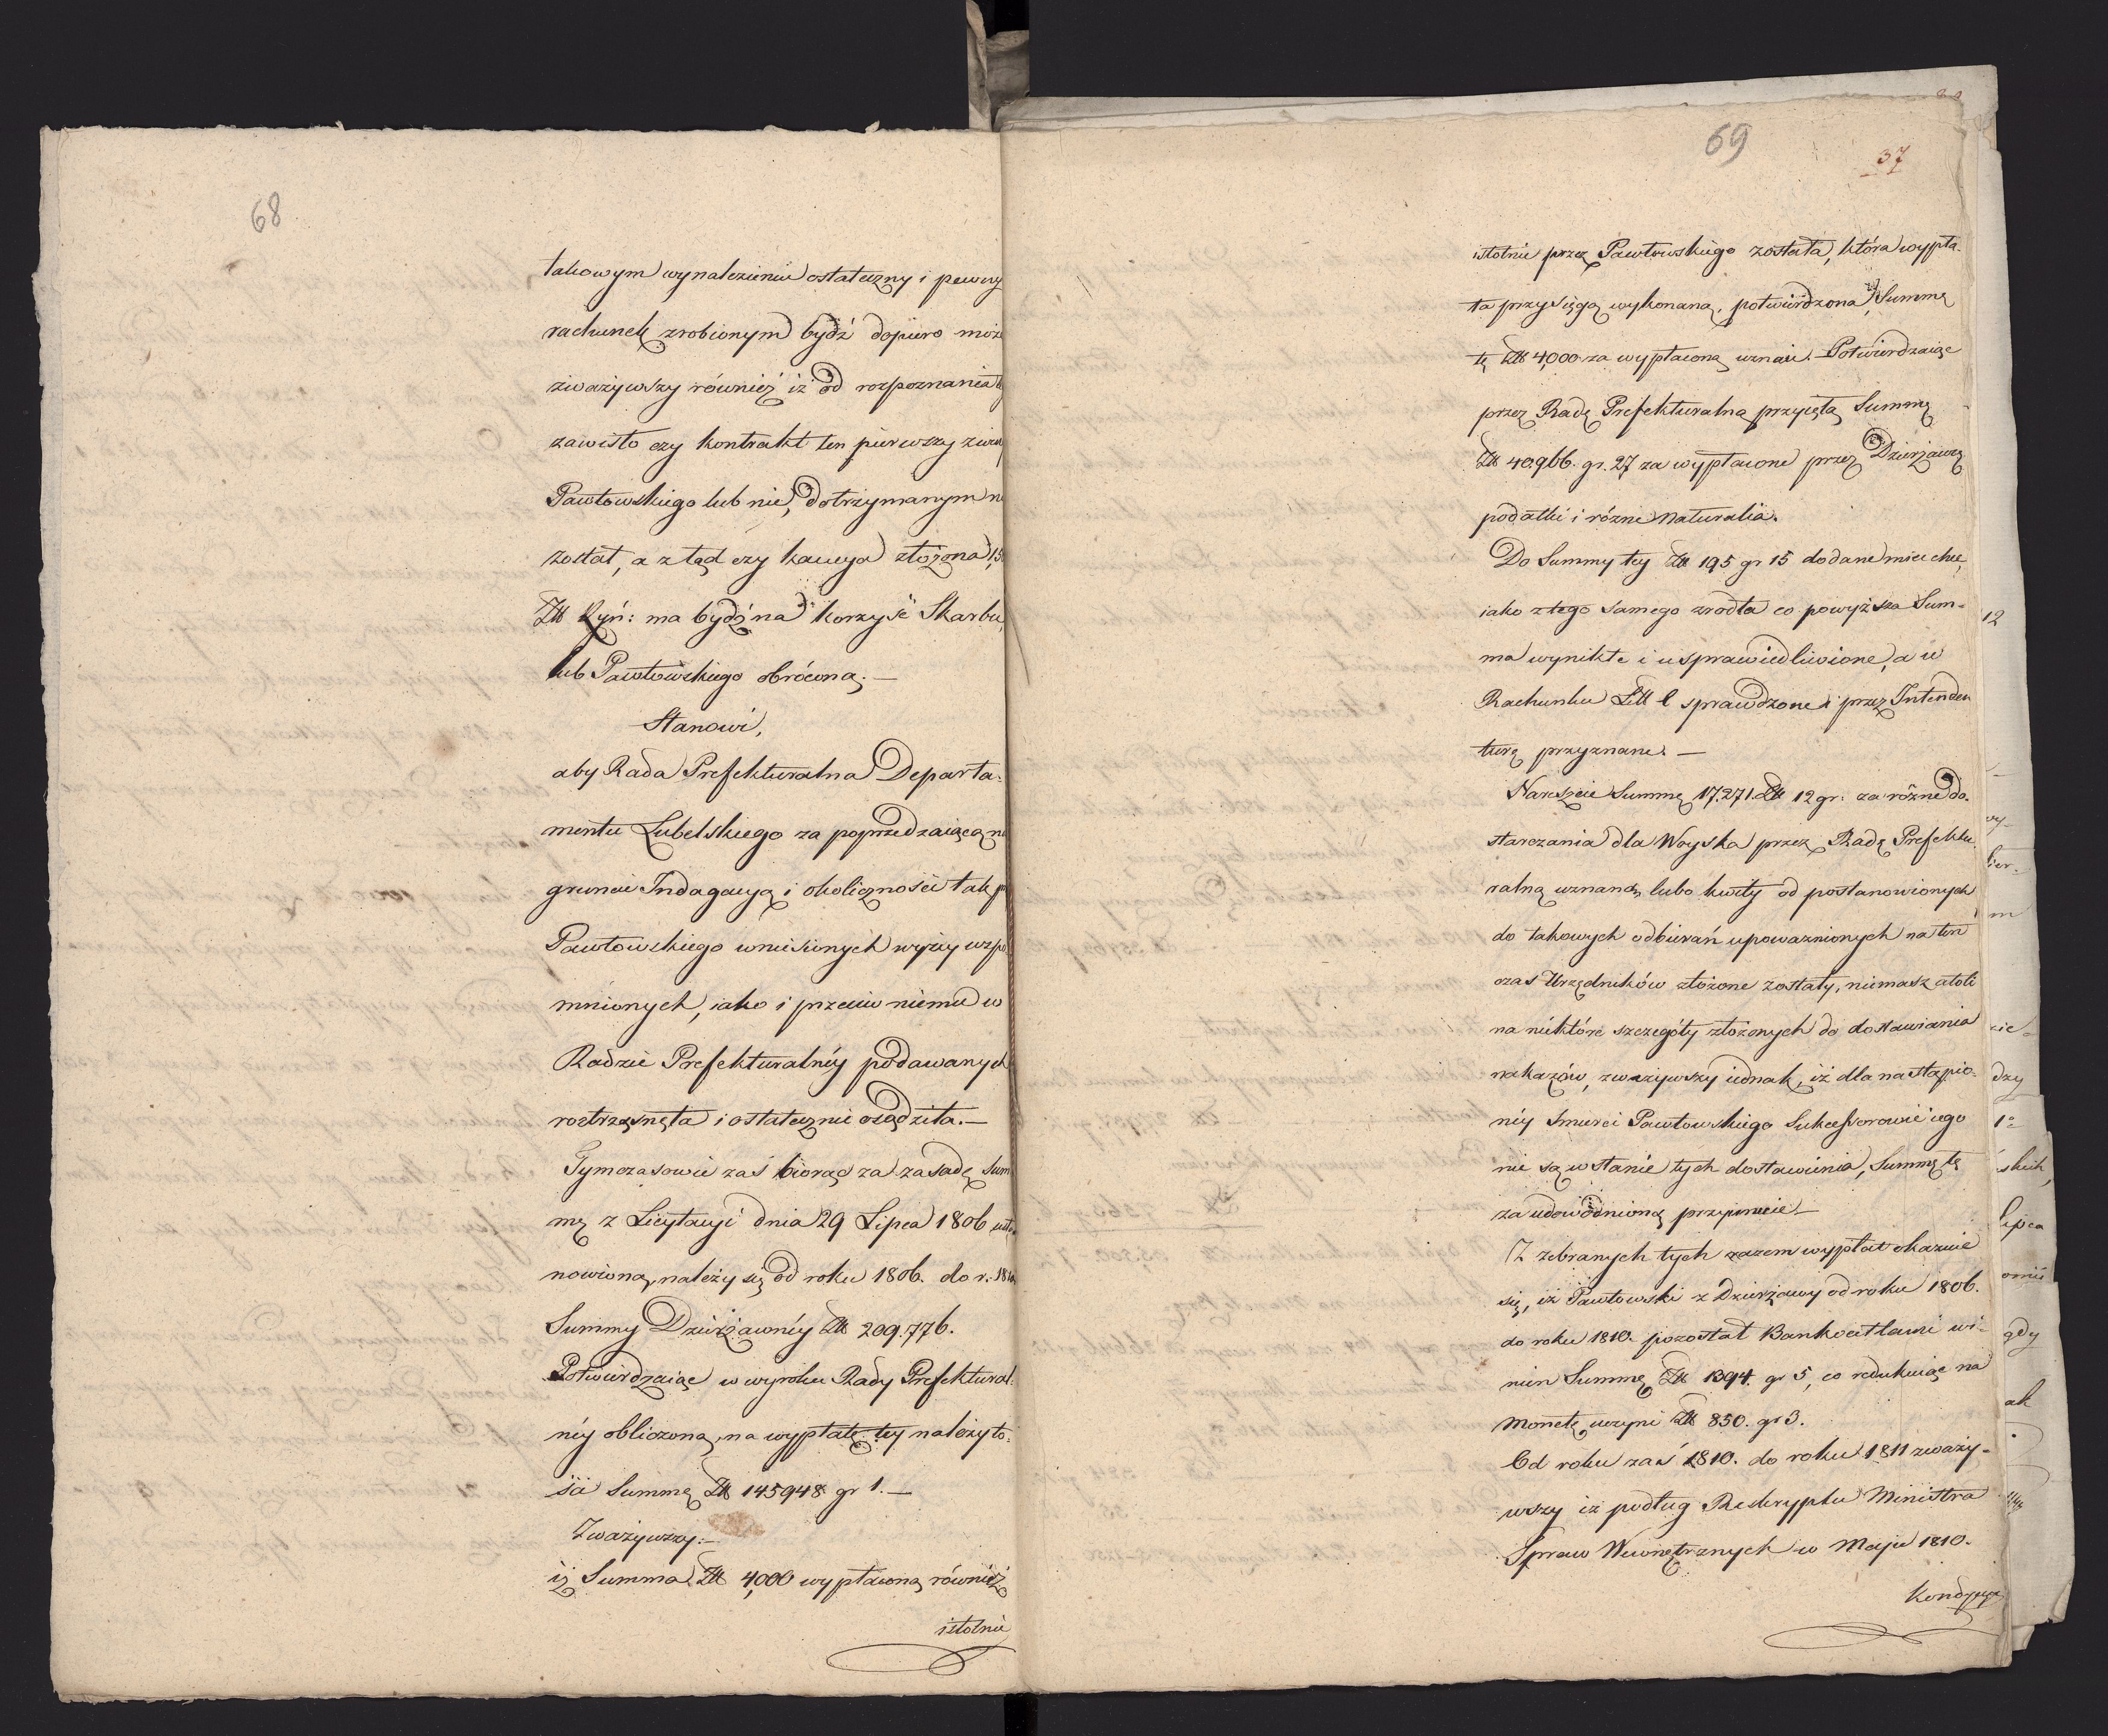 68
takowym wynalezieniu ostateczny i pewny
rachunek zrobionym bydź dopiero może
zważywszy również iż od rozpoznania
zawisło czy kontrakt ten pierwszy
Pawłowskiego lub nie, dotrzymanym
został, a ztąd czy kaucya złożona
Złł Ryń: ma bydź na korzyść Skarbu,
lub Pawłowskiego obróconą. —
Stanowi,
aby Rada Prefekturalna Departa-
mentu Lubelskiego za poprzedzaiącą na
gruncie Indagacyą i okoliczności tak
Pawłowskiego wniesionych wyży wspo
mnionych, iako i przeciw niemu w
Radzie Prefekturalnéy podawanych
roztrząsnęła i ostatecznie osądziła. —
Tymczasowie zaś biorąc za zasadę Sum
mę z Licytacyi dnia 29 Lipca 1806
nowioną, należy się od roku 1806. do r.
Summy Dzierżawnéy Złł 209.776.
Potwierdzaiąc w wyroku Rady Prefektural-
néy obliczoną, na wypłatę téy należyto-
ści Summę Złł 145948 gr 1. —
Zważywszy: —
iż Summa Złł 4,000 wypłaconą również
istotnie
69
37
istotnie przez Pawłowskiego została, która wypła-
ta przysięgą wykonaną, potwierdzona, Summę
tę Złł 4,000 za wypłaconą uznaie. — Potwierdzaiąc
przez Radę Prefekturalną przyiętą Summę
Złł 40,966. gr. 27 za wypłacone przez Dzierżawcę
podatki i różne naturalia.
Do Summy téy Złł 195 gr 15 dodane mieć chce,
iako z tego samego zrodła co powyższa Sum-
ma wynikłe i usprawiedliwione, a w
Rachunku Litt l sprawdzone i przez Intenden
turę przyznane. —
Nareszcie Summę 17,271. Złł 12 gr: za różne do-
starczania dla Woyska przez Radę Prefektu
ralną uznaną, lubo kwity od postanowionych
do takowych odbierań upoważnionych na ten
czas Urzędników złożone zostały, niemasz atoli
na niektóre szczegóły złożonych do dostawiania
nakazów, zważywszy iednak, iż dla nastąpio-
néy śmierci Pawłowskiego Sukcessorowie iego
nie są w stanie tych dostawienia, Summę tę
za udowodnioną przyimuie. —
Z zebranych tych razem wypłat okazuie
się, iż Pawłowski z Dzierżawy od roku 1806.
do roku 1810. pozostał Bankocetlami wi-
nien Summę Złł 1394. gr 5, co redukuiąc na
monetę uczyni Złł 850. gr 3.
Od roku zaś 1810. do roku 1811 zważy-
wszy iż podług Reskryptu Ministra
Spraw Wewnętrznych w Maju 1810.
12
dzy
1o
skich,
lipca
gdy
ak